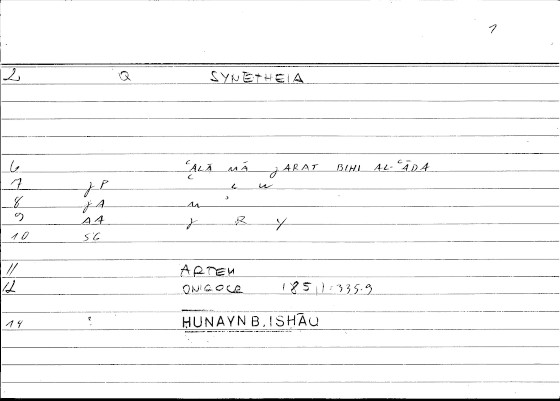 1
2 Q SYNETHEIA
6 ʿALĀ MĀ JARAT BIHI AL-ʿĀDA
7 JP ʿ L W
8 JA M ʾ
9 AA J R Y
10 SG
11 ARTEM
12 ONIGOCR 185,1:335.9
14 : HUNAYN B. ISHĀQ